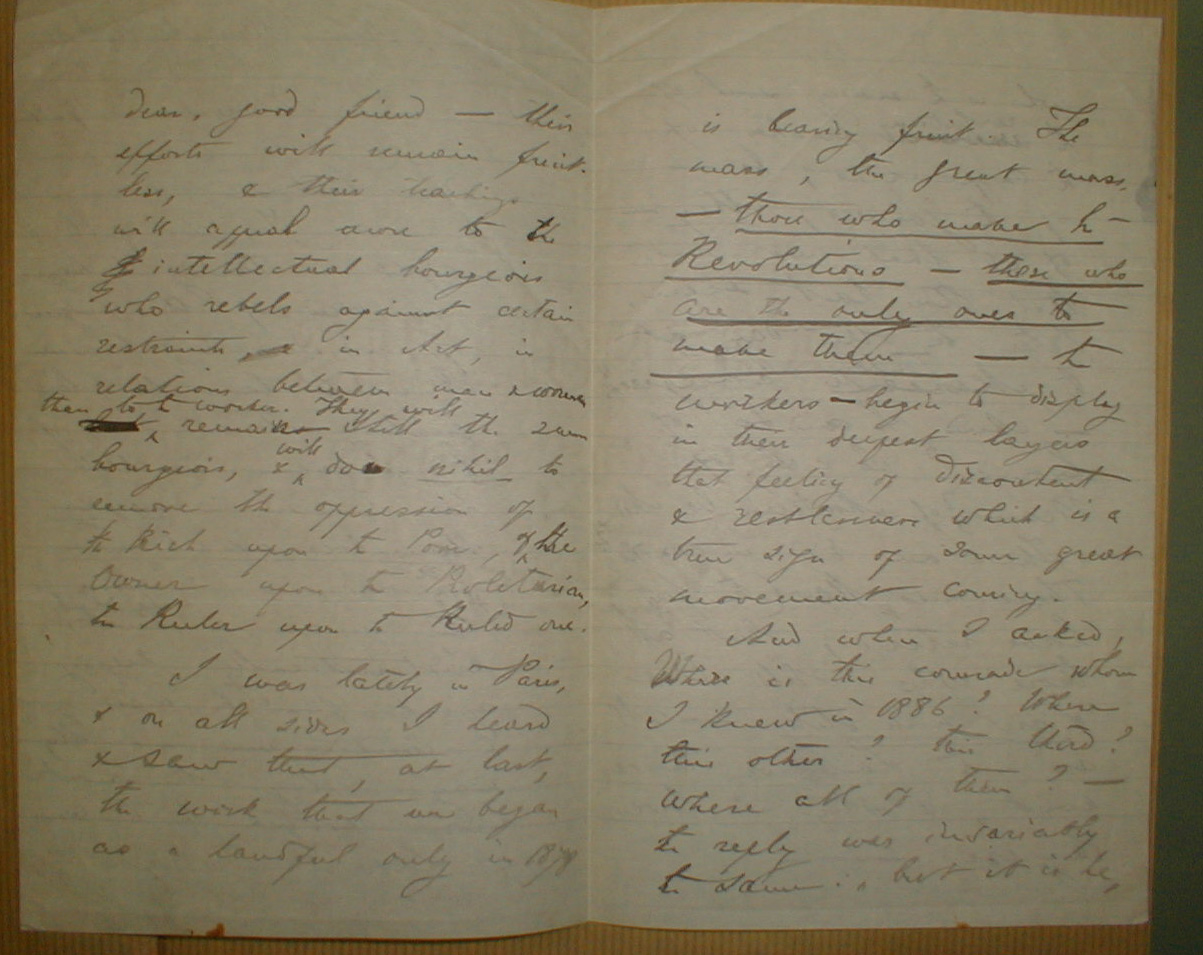 dear, good friend — their
efforts will remain fruit-
less, & their teachings
will appeal more to the
intellectual bourgeois
who rebels against certain
restraints, in Art, in
relations between man & woman
than to t worker. They will
remain still the same
bourgeois, & will do nihil to
remove the oppression of
th Rich upon t Poor, of the
Owner upon t Proletarian,
th Ruler upon t Ruled one.
I was lately in Paris,
& on all sides I heard
& saw that, at last,
th work that we began
as a handful only in 1878
is bearing fruit. The
mass, the great mass,
— those who make th
Revolutions — those who
are the only ones to
make them — th
workers — begin to display
in their deepest layers
that feeling of discontent
& restlessness which is a
true sign of some great
movement coming.
And when I asked,
Where is this comrade whom
I knew in 1886? Where
this other? this third?
Where all of them? —
th reply was invariably
th same: but it is he,